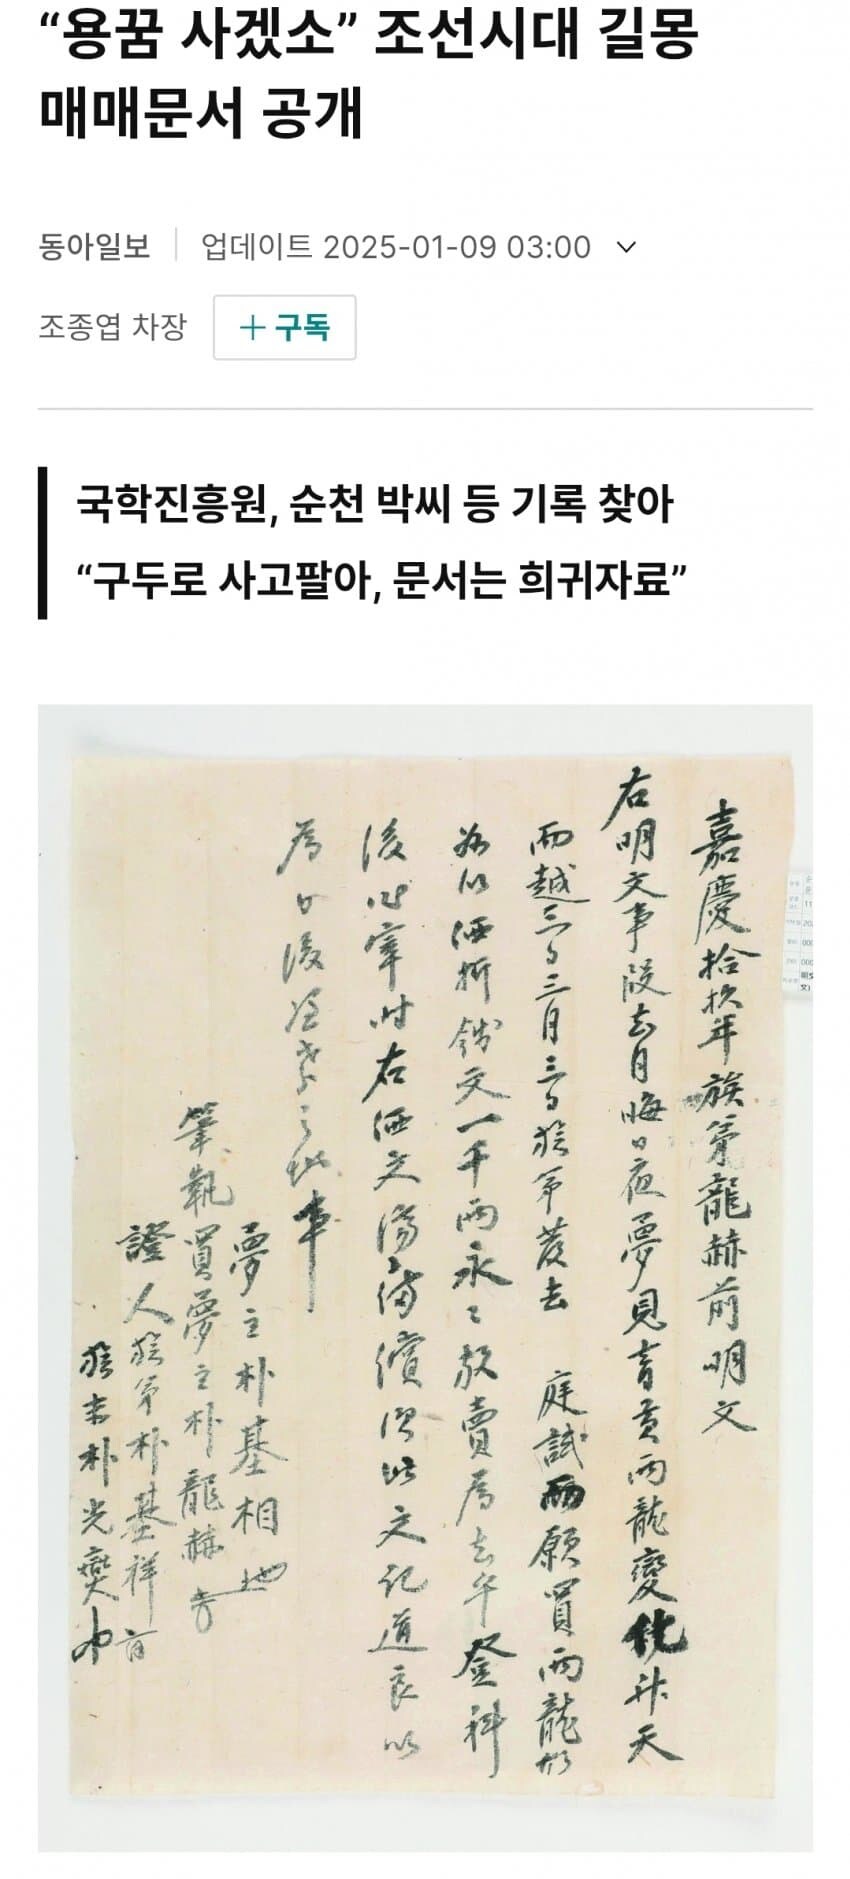 “용꿈 사겠소” 조선시대 길몽
매매문서 공개
동아일보
업데이트 2025-01-09 03:00
조종엽 차장
+ 구독
국학진흥원, 순천 박씨 등 기록 찾아
“구두로 사고팔아, 문서는 희귀자료”
嘉慶拾玖年族弟龍赫前明文
右明文事段去月晦日夜夢見青黃兩龍變化升天
而越三日三月三日族弟發去 庭試而願買兩龍
酒折錢文一千兩永永放賣爲去乎登科
後 時右 文 備償 此文記 良以
爲 後 事
夢主朴基相
筆執買夢主朴龍赫
證人族弟朴基祥
朴光